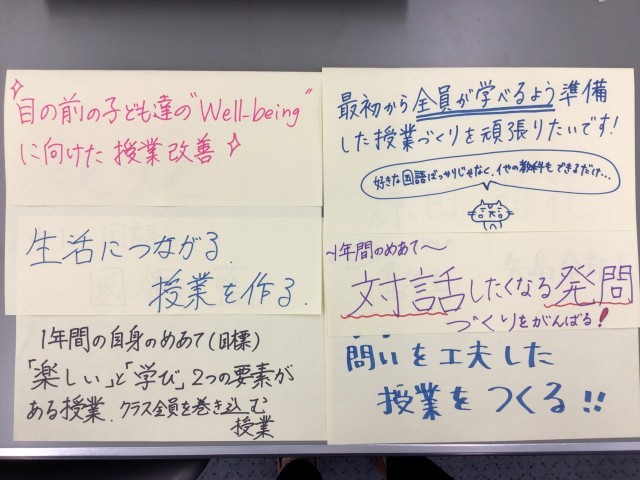 目の前の子ども達の"Well-being"
に向けた授業改善
生活につながる
授業を作る.
1年間の自身のめあて(目標)
「楽しい」と「学び」2つの要素が
ある授業.クラス全員を巻き込む
授業
最初から全員が学べるよう準備
した授業づくりを頑張りたいです!
好きな国語ばっかりじゃなく、他の教科もできるだけ…
〜1年間のめあて〜
対話したくなる発問
づくりをがんばる!
問いを工夫した
授業をつくる!!